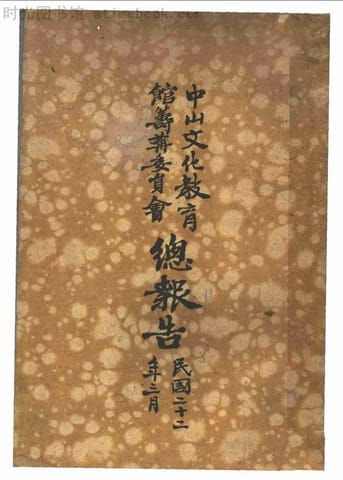 时光图书馆 - atimebook.com
中山文化教育
館籌備委員會
總報告
民國二十二
年三月